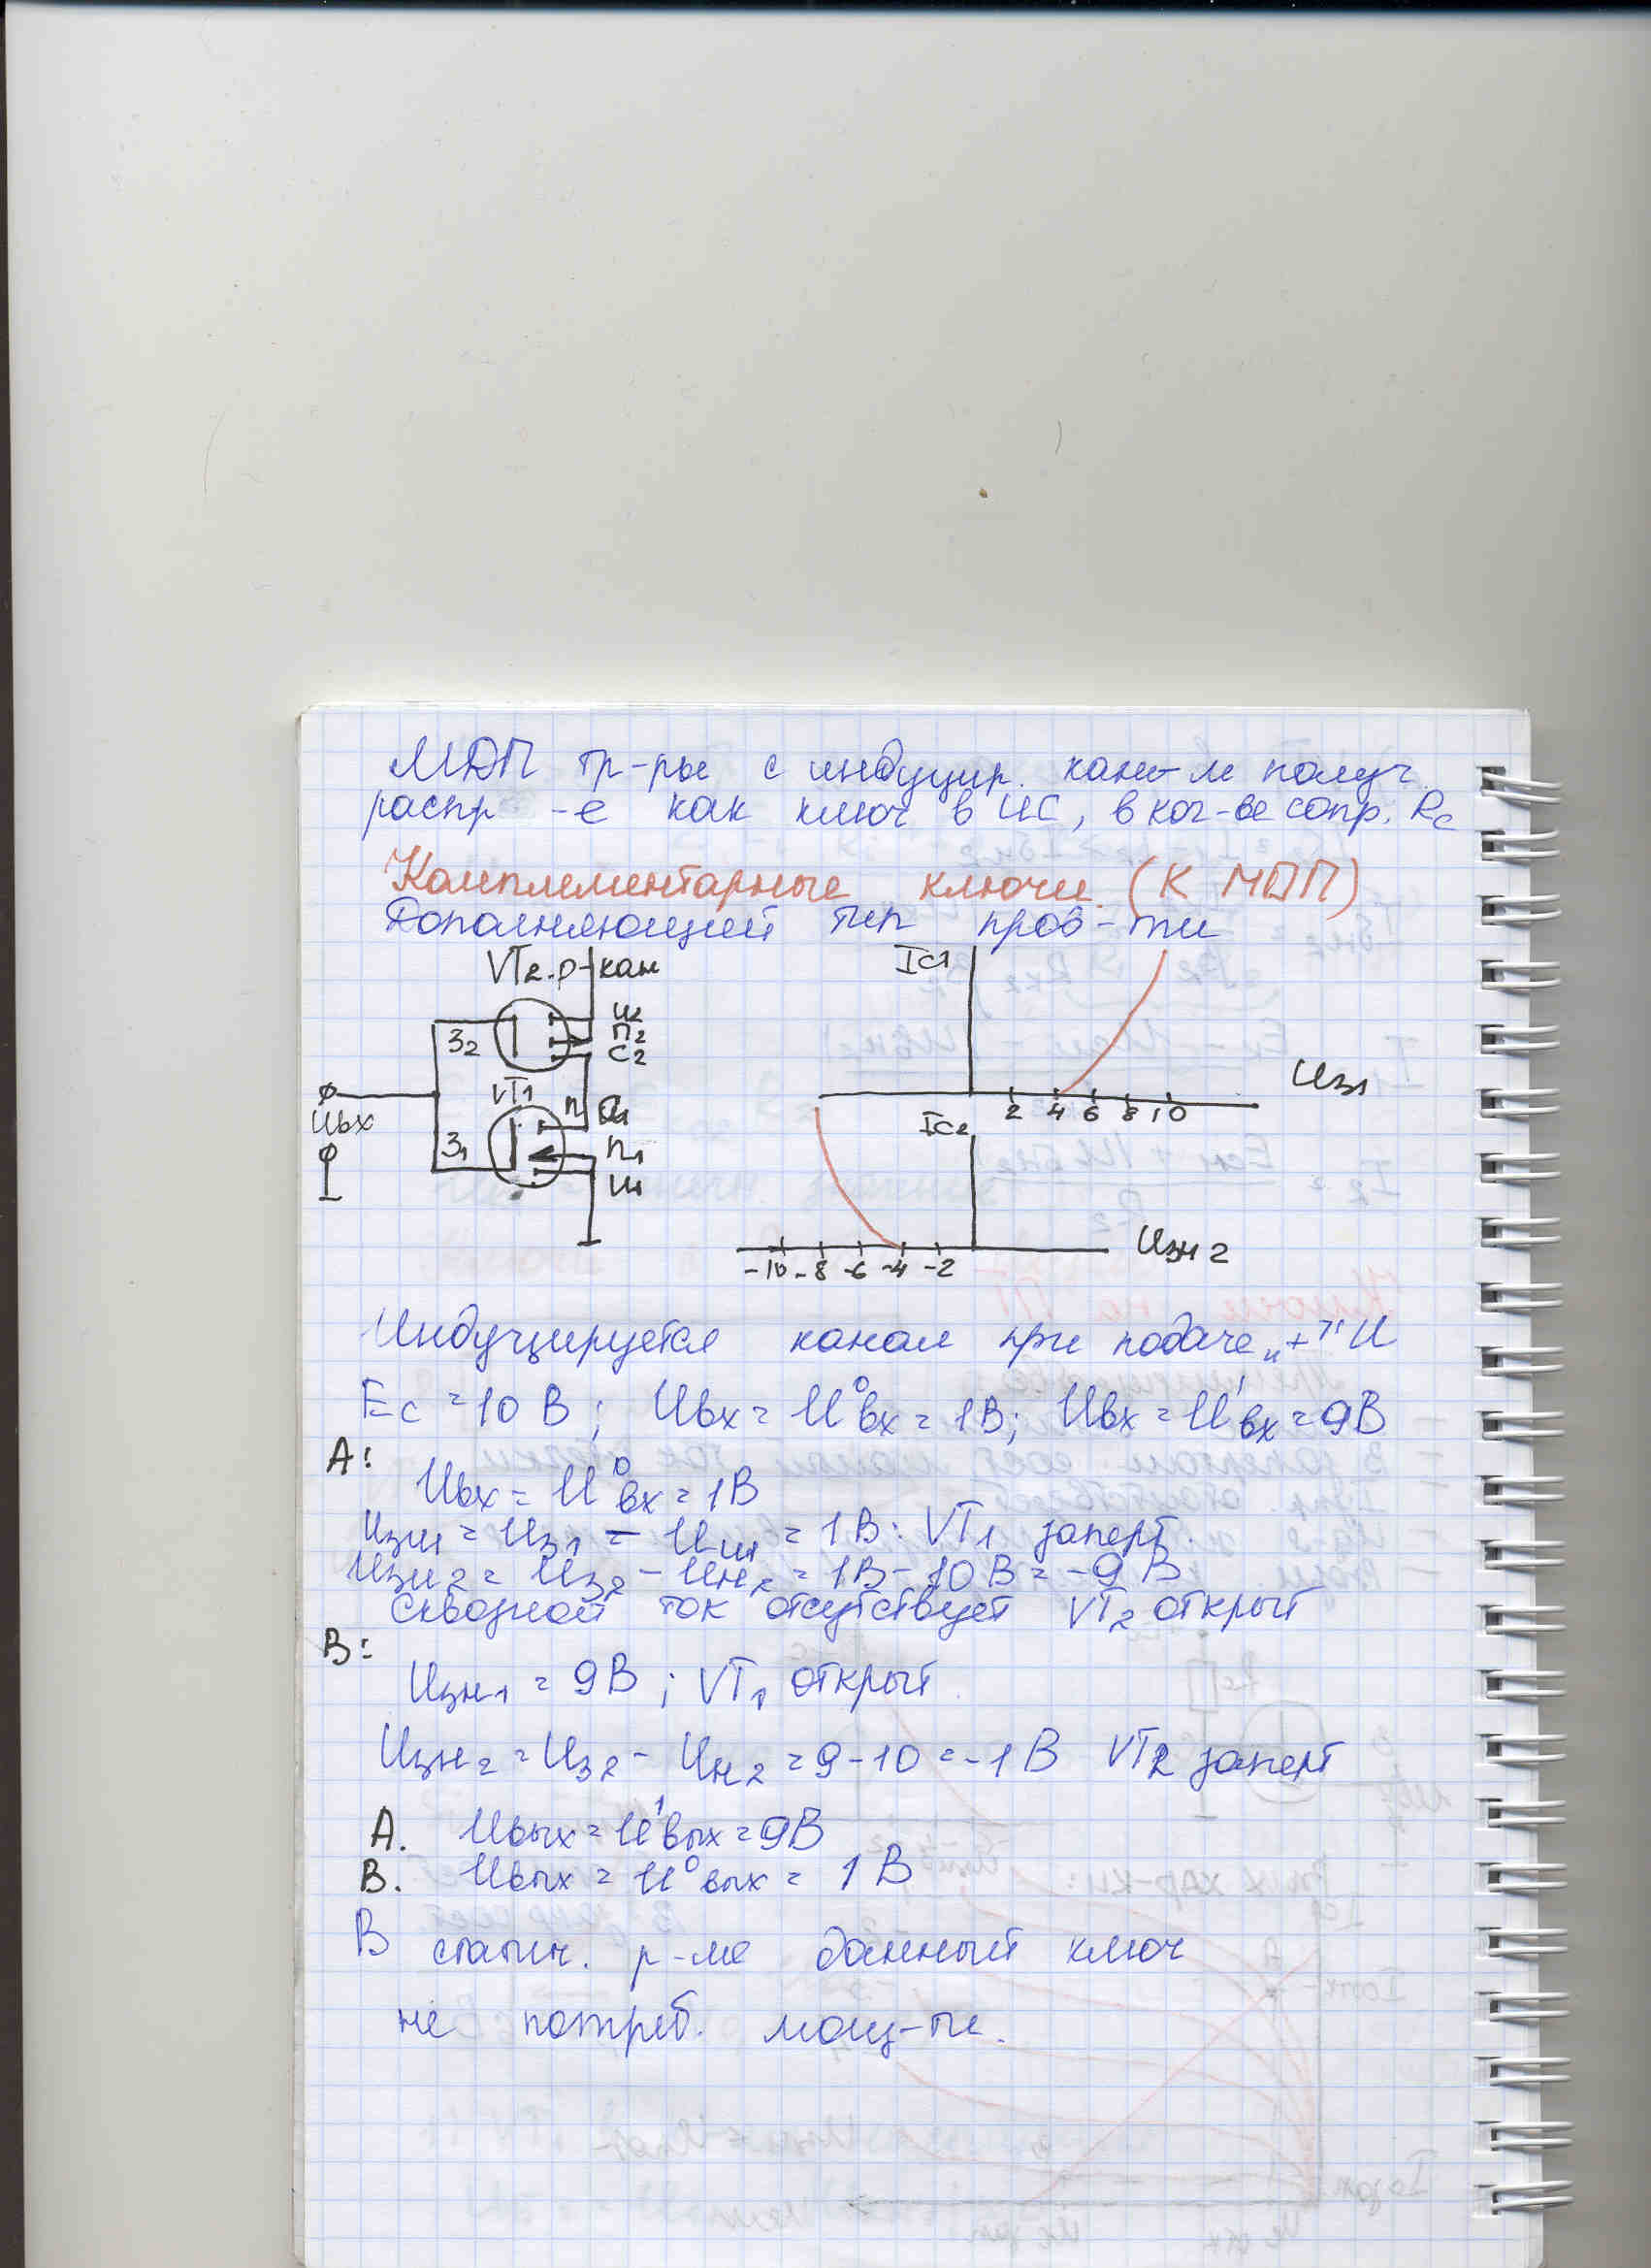 МДП тр-ры с индуцир. кан-м получ.
распр-е как ключ в ИС, в кач-ве сопр. Rc
Комплементарные ключи. (К МДП)
Дополняющий тип пров-ти
VT2 p-кан
Ic1
И2
П2
C2
З2
VT1
n
Uвх
З1
П1
И1
Uзи1
2 4 6 8 10
Ic2
Uзи2
-10 -8 -6 -4 -2
Индуцируется канал при подаче „+" U
Ec = 10 В; Uвх = U⁰вх = 1В; Uвх = U¹вх = 9В
A:
Uвх = U⁰вх = 1В
Uзи1 = Uз1 - Uи1 = 1В: VT1 заперт.
Uзи2 = Uз2 - Uи2 = 1В - 10В = -9 В
Сквозной ток отсутствует VT2 открыт
B:
Uзи1 = 9В; VT1 открыт
Uзи2 = Uз2 - Uи2 = 9 - 10 = -1 В VT2 заперт
A. Uвых = U¹вых = 9В
B. Uвых = U⁰вых = 1 В
В статич. р-ме данный ключ
не потреб. мощ-ти.